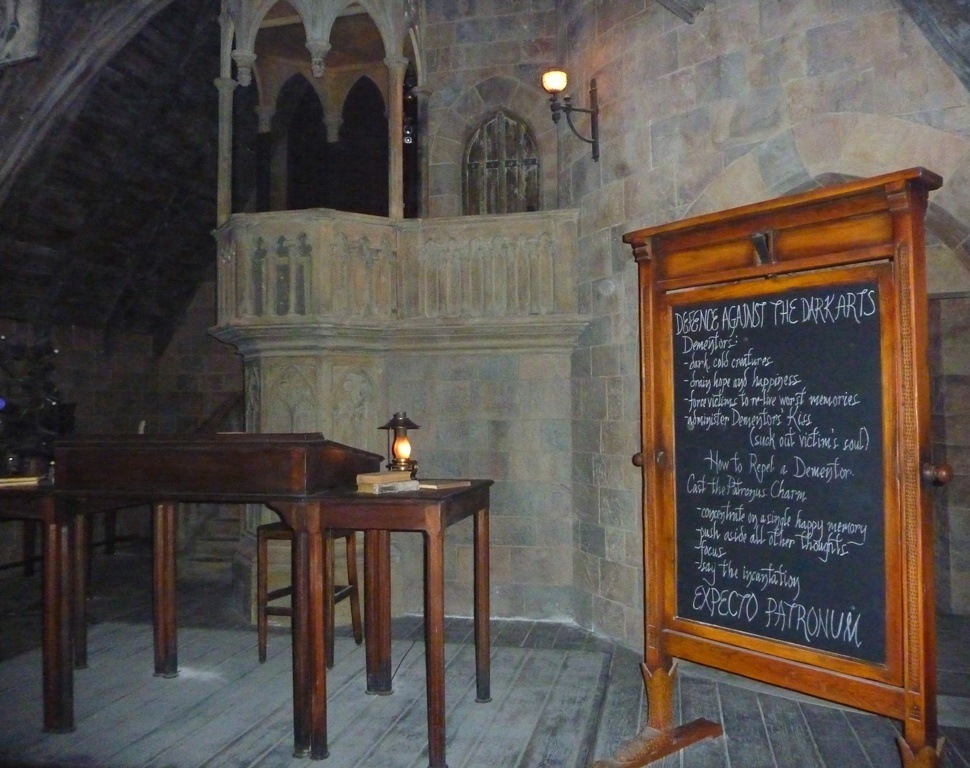 DEFENCE AGAINST THE DARK ARTS
Dementors:
- dark, cold creatures
- drain hope and happiness
- force victims to re-live worst memories
- administer Dementors' Kiss
(suck out victim's soul)
How to Repel a Dementor
Cast the Patronus Charm
- concentrate on a single happy memory
- push aside all other thoughts
- focus
- say the incantation
EXPECTO PATRONUM